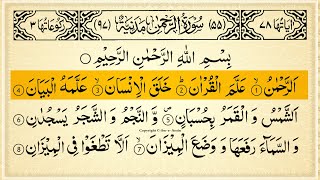 اٰیَاتُهَا ۷۸ (۵۵) سُوْرَةُ الرَّحْمٰنِ مَدَنِیَّةٌ (۹۷) رُكُوْعَاتُهَا ۳
بِسْمِ اللّٰهِ الرَّحْمٰنِ الرَّحِیْمِ
اَلرَّحْمٰنُ ① عَلَّمَ الْقُرْاٰنَ ② خَلَقَ الْاِنْسَانَ ③ عَلَّمَهُ الْبَیَانَ ④
اَلشَّمْسُ وَ الْقَمَرُ بِحُسْبَانٍ ⑤ وَّ النَّجْمُ وَ الشَّجَرُ یَسْجُدٰنِ ⑥
وَ السَّمَآءَ رَفَعَهَا وَ وَضَعَ الْمِیْزَانَ ⑦ اَلَّا تَطْغَوْا فِی الْمِیْزَانِ ⑧